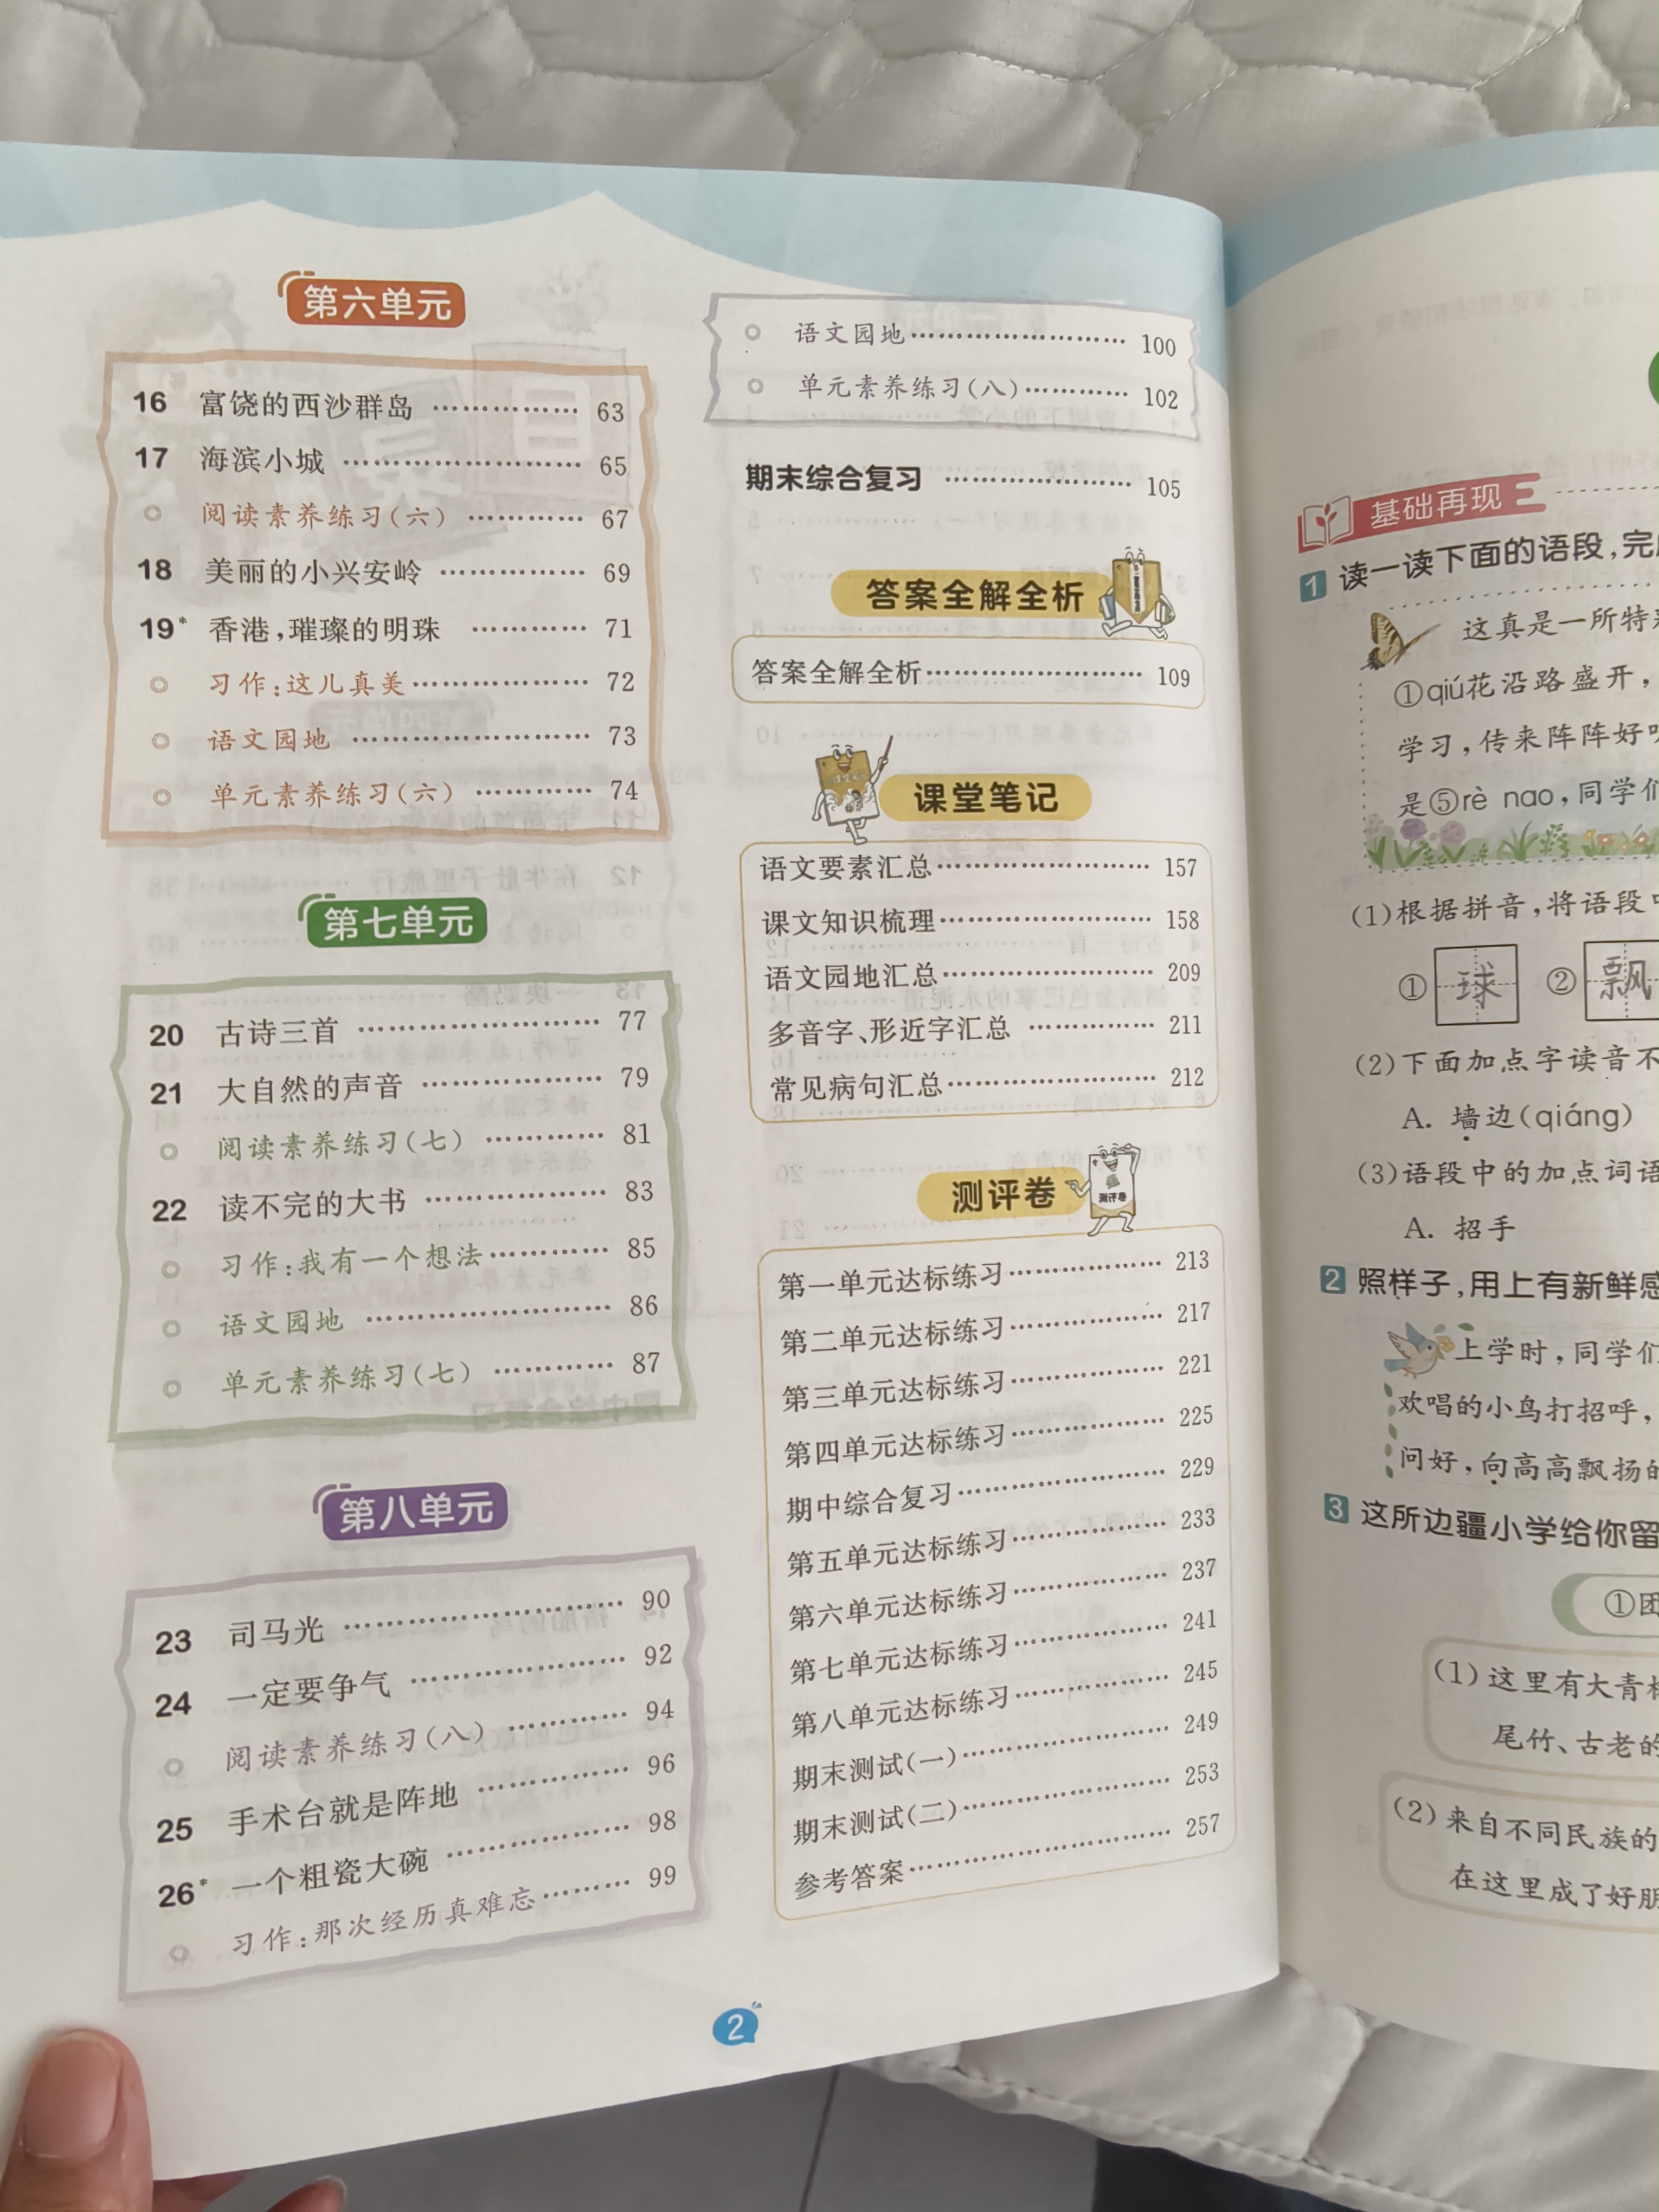 第六单元
16 富饶的西沙群岛 …………… 63
17 海滨小城 …………………… 65
阅读素养练习(六) ………… 67
18 美丽的小兴安岭 …………… 69
19* 香港,璀璨的明珠 ………… 71
习作:这儿真美……………… 72
语文园地 …………………… 73
单元素养练习(六) ………… 74
第七单元
20 古诗三首 …………………… 77
21 大自然的声音 ……………… 79
阅读素养练习(七) ………… 81
22 读不完的大书 ……………… 83
习作:我有一个想法………… 85
语文园地 …………………… 86
单元素养练习(七) ………… 87
第八单元
23 司马光 ……………………… 90
24 一定要争气 ………………… 92
阅读素养练习(八) ………… 94
25 手术台就是阵地 …………… 96
26* 一个粗瓷大碗 ……………… 98
习作:那次经历真难忘……… 99
语文园地…………………… 100
单元素养练习(八)………… 102
期末综合复习 ……………… 105
答案全解全析
答案全解全析…………………… 109
课堂笔记
语文要素汇总…………………… 157
课文知识梳理…………………… 158
语文园地汇总…………………… 209
多音字、形近字汇总 ………… 211
常见病句汇总…………………… 212
测评卷
测评卷
第一单元达标练习……………… 213
第二单元达标练习……………… 217
第三单元达标练习……………… 221
第四单元达标练习……………… 225
期中综合复习…………………… 229
第五单元达标练习……………… 233
第六单元达标练习……………… 237
第七单元达标练习……………… 241
第八单元达标练习……………… 245
期末测试(一)…………………… 249
期末测试(二)…………………… 253
参考答案………………………… 257
2
基础再现
1 读一读下面的语段,完
这真是一所特
①qiú花沿路盛开,
学习,传来阵阵好
是⑤rè nao,同学们
(1)根据拼音,将语段
① 球 ② 飘
(2)下面加点字读音不
A. 墙边(qiáng)
(3)语段中的加点词语
A. 招手
2 照样子,用上有新鲜感
上学时,同学们
欢唱的小鸟打招呼,
问好,向高高飘扬的
3 这所边疆小学给你留
①团
(1)这里有大青
尾竹、古老的
(2)来自不同民族的
在这里成了好朋